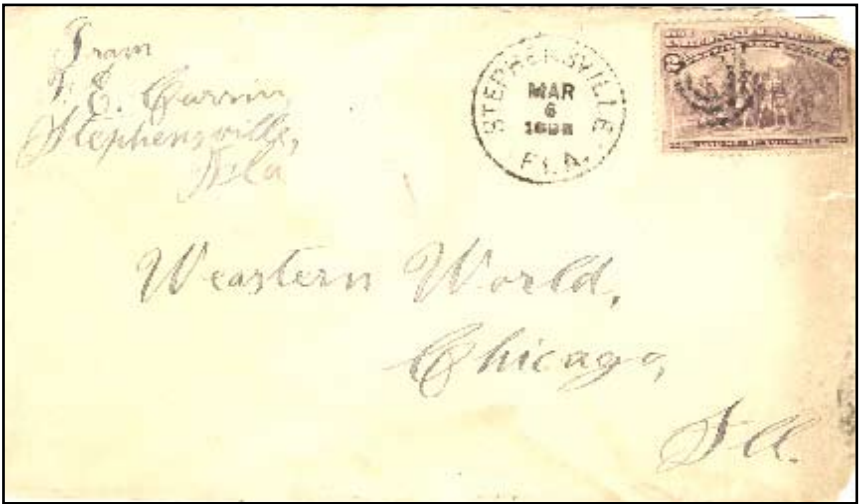 From
E.
Stephensville,
Fla
STEPHENSVILLE
MAR
6
FLA.
2
Weastern World,
Chicago,
Ill.